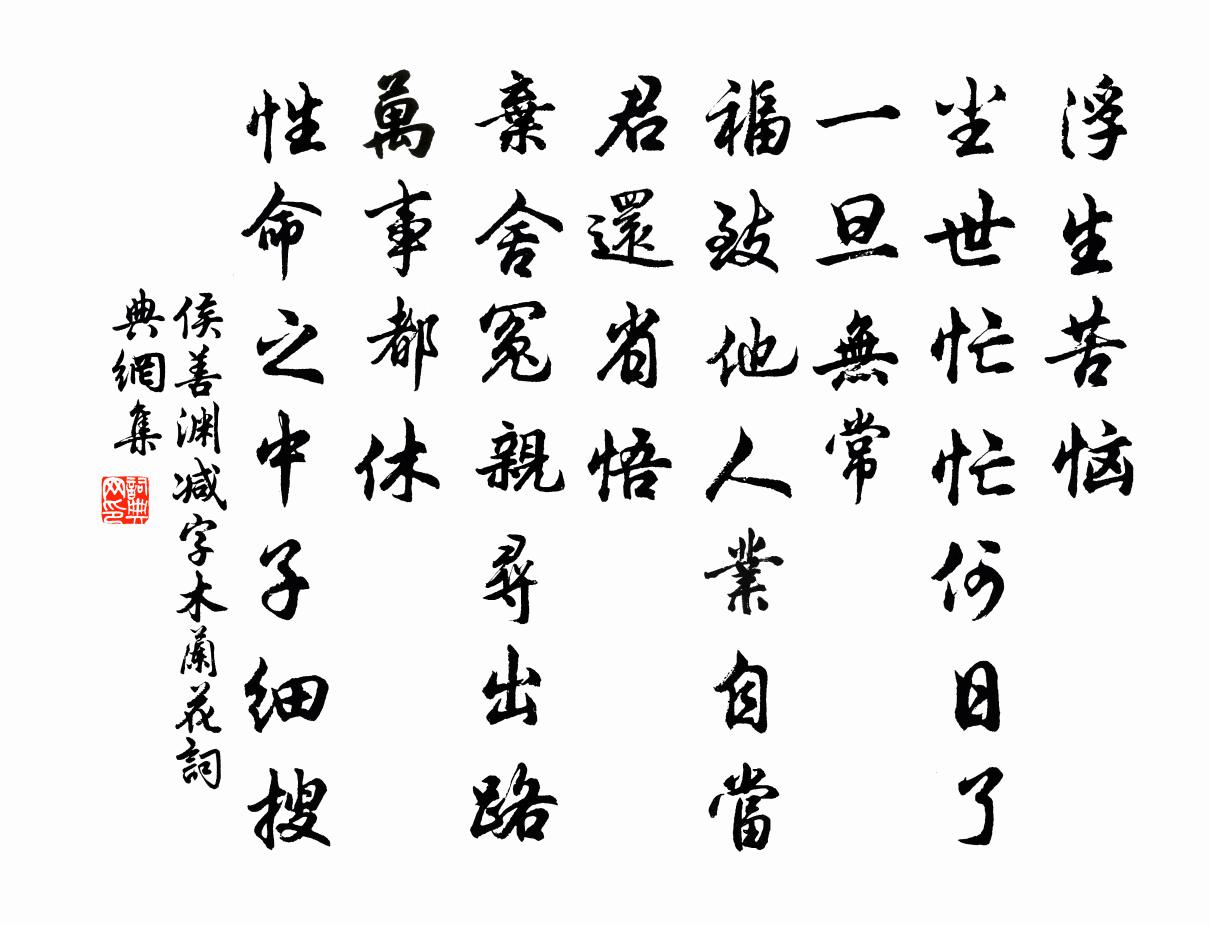 浮生苦恼
尘世忙忙何日了
一旦無常
福致他人業自當
君還省悟
棄舍冤親尋出路
萬事都休
性命之中子细搜
侯善渊减字木蘭花詞
典網集
詞典
网印